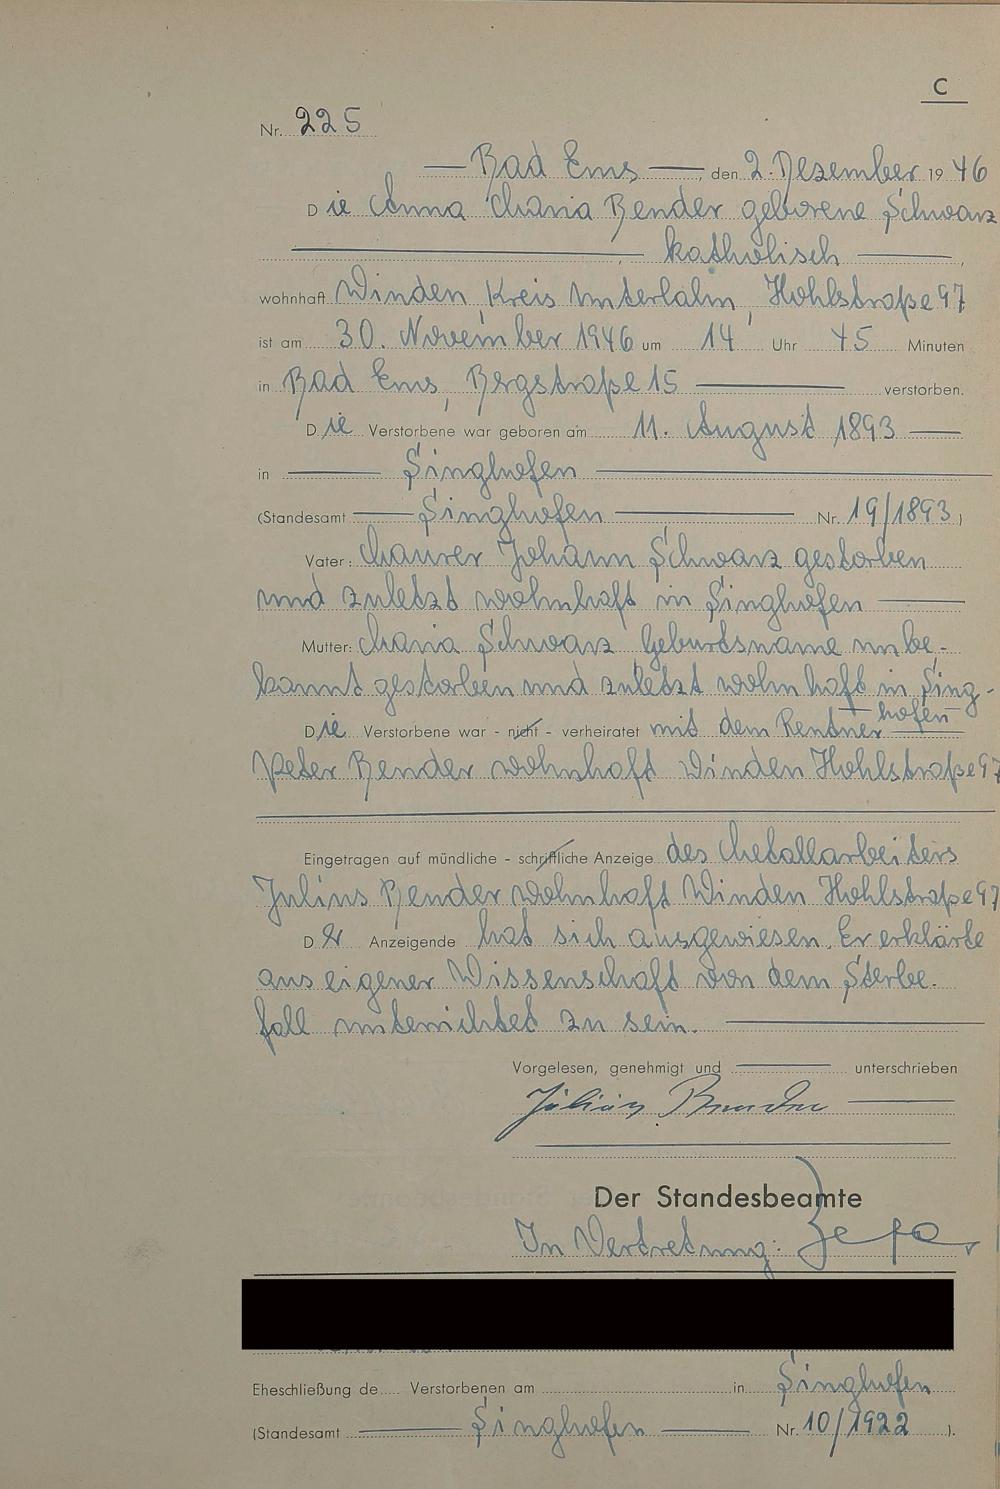 C
Nr. 225
— Bad Ems —, den 2. Dezember 19 46
Die Anna Maria Bender geborene Schwarz
— katholisch —,
wohnhaft Winden, Kreis Unterlahn, Hohlstraße 97
ist am 30. November 1946 um 14 Uhr 45 Minuten
in Bad Ems, Bergstraße 15 — verstorben.
Die Verstorbene war geboren am 11. August 1893 —
in — Singhofen —
(Standesamt — Singhofen — Nr. 19/1893)
Vater: Maurer Johann Schwarz gestorben
und zuletzt wohnhaft in Singhofen —
Mutter: Maria Schwarz Geburtsname unbe-
kannt gestorben und zuletzt wohnhaft in Sing-
hofen —
Die Verstorbene war - nicht - verheiratet mit dem Rentner —
Peter Bender wohnhaft Winden Hohlstraße 97
Eingetragen auf mündliche - schriftliche Anzeige des Metallarbeiters
Julius Bender wohnhaft Winden Hohlstraße 97
Der Anzeigende hat sich ausgewiesen. Er erklärte
aus eigener Wissenschaft von dem Sterbe-
fall unterrichtet zu sein. —
Vorgelesen, genehmigt und — unterschrieben
Julius Bender —
Der Standesbeamte
In Vertretung:
Eheschließung de.... Verstorbenen am .......... in Singhofen
(Standesamt — Singhofen — Nr. 10/1922).